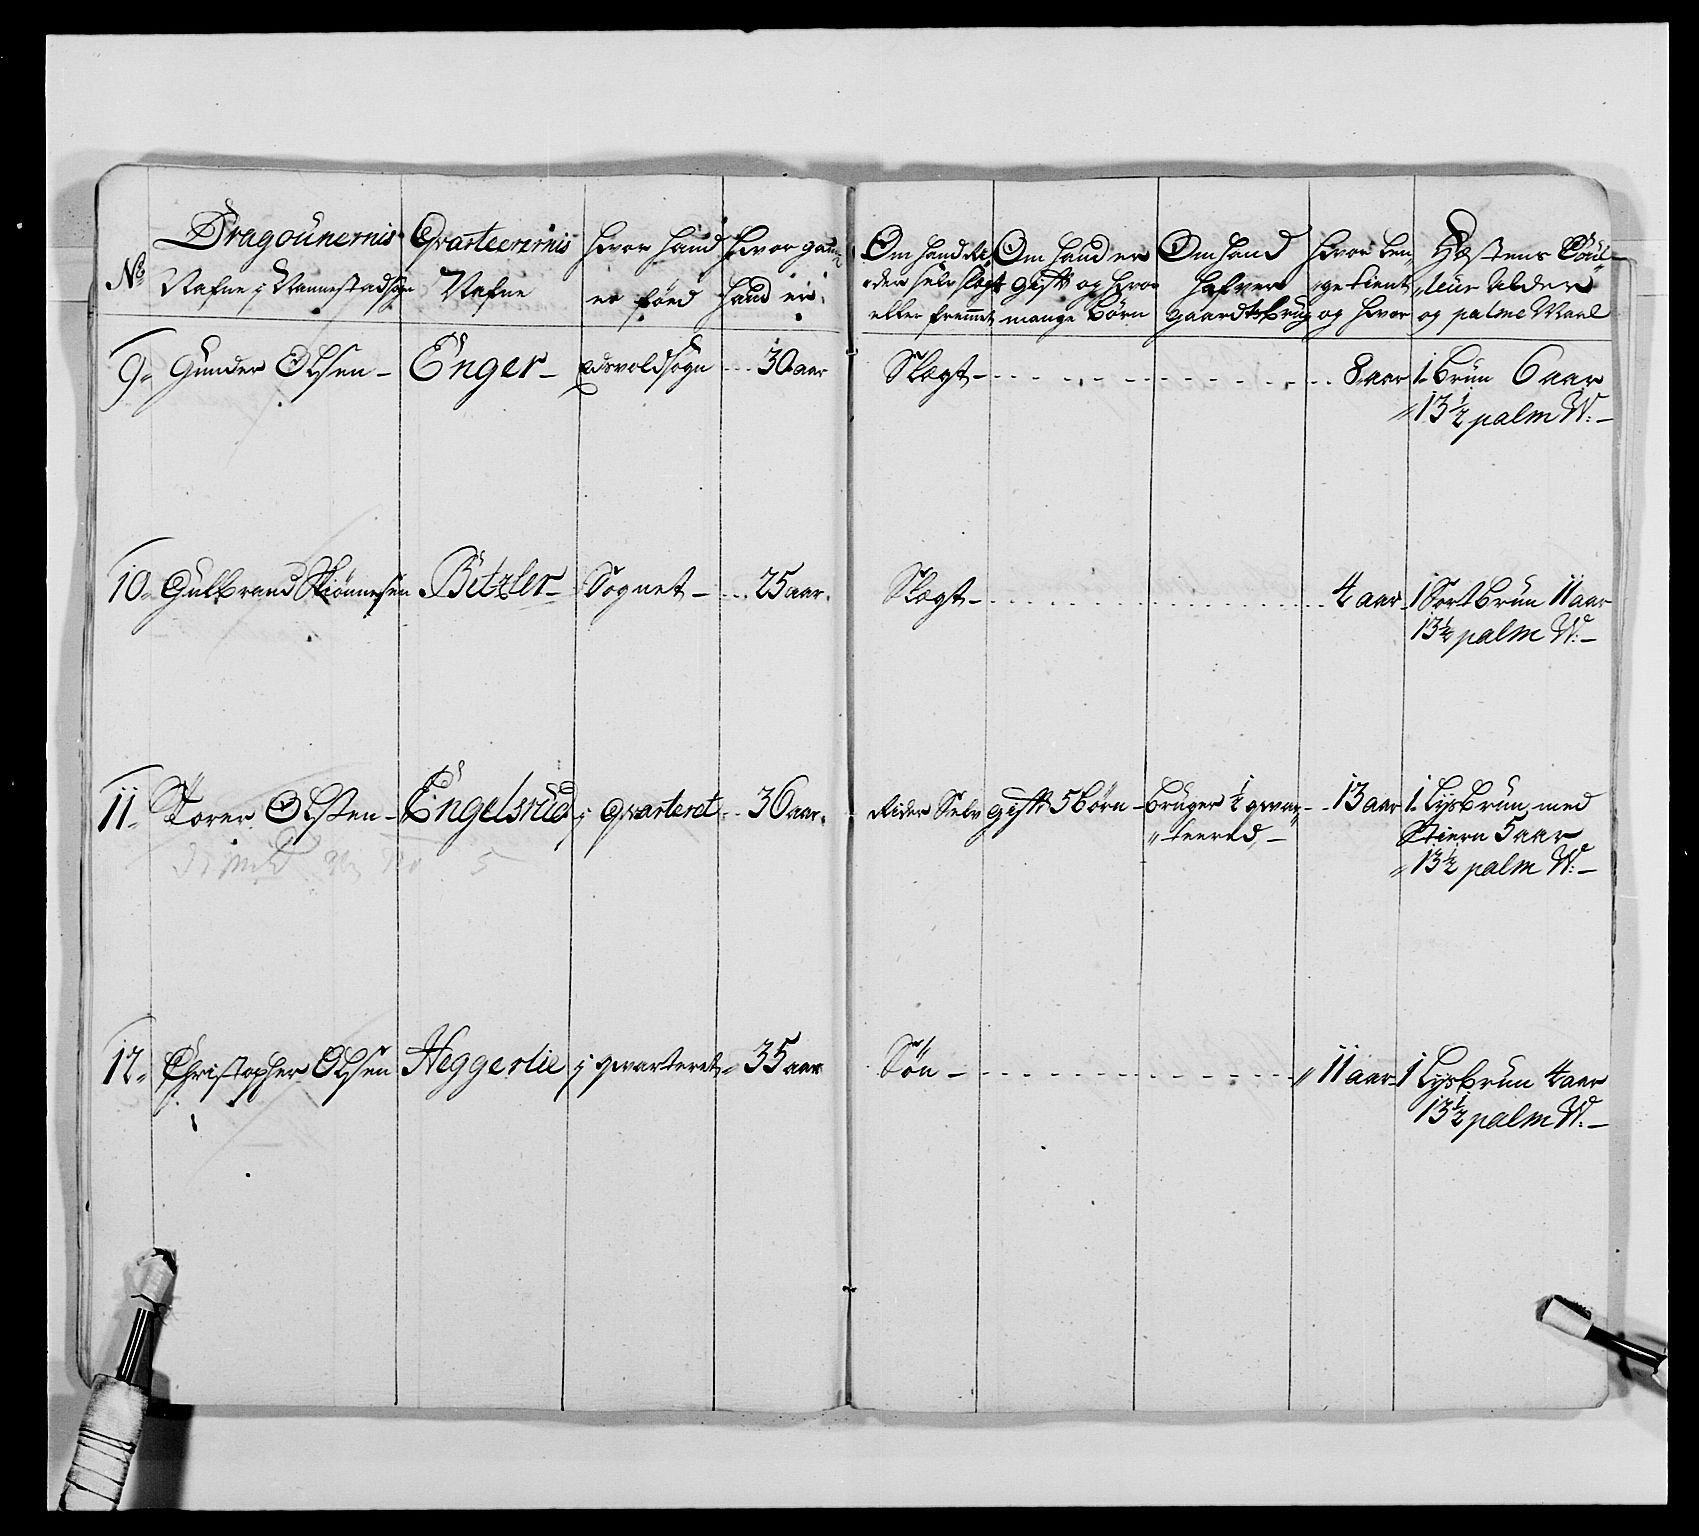 No
Dragounernis
Nafne i Nannestad sogn
Qvarteerernis
Nafne
Hvor hand
er föed
Hvor gam
hand er.
Om hand Ri
der self Slegt
eller fremmet
Om hand er
gift og hvor
mange Börn
Om hand
hafver
gaardtebrug
Hvor len
ge tient
og hvor
Hæstens Coul-
leur Alder
og palme Maal
9. Gunder Olsen - Enger - Edsvoldsogn 30 aar Slegt - 8 aar 1 Brun 6 aar
13½ palm W: -
10. Gulbrand Skönnesen Betzler - Sognet - 25 aar. Slegt - 4 aar 1 Sort brun 11 aar
13½ palm W: -
11. Torer Olsen - Engelsrud i qvarteret 36 aar. Rider Selv gift 5 börn - Bruger ½ qvar- 13 aar 1 Lysbrun med
teered, - Stiern 5 aar
13½ palm W: -
12. Christopher Olsen Heggerlie i qvarteret 35 aar Sön - 11 aar 1 Lysbrun 4 aar
13½ palm W: -